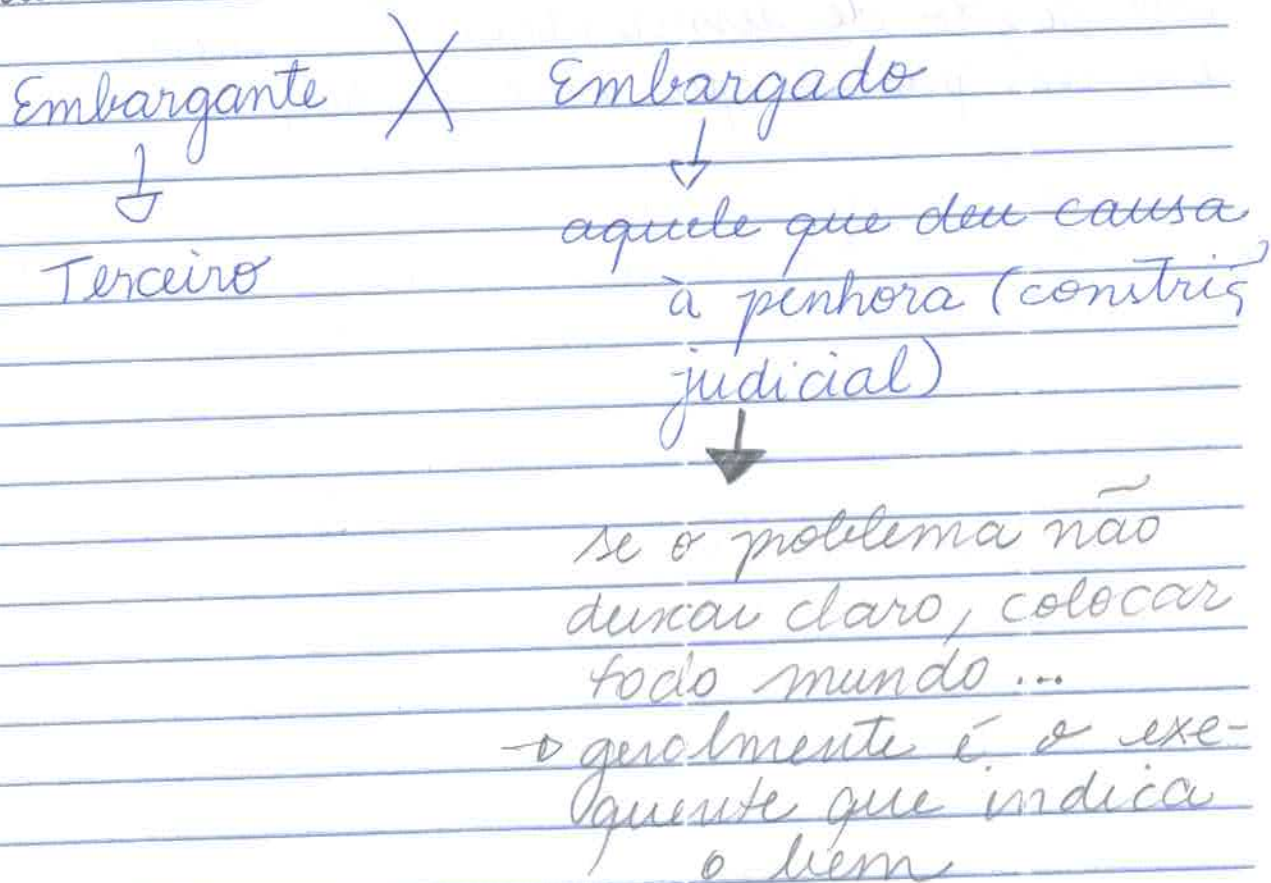 Embargante X Embargado
↓ ↓
Terceiro
aquele que deu causa
à penhora (constriç
judicial)
↓
se o problema não
deixar claro, colocar
todo mundo ...
→ geralmente é o exe-
quente que indica
o bem